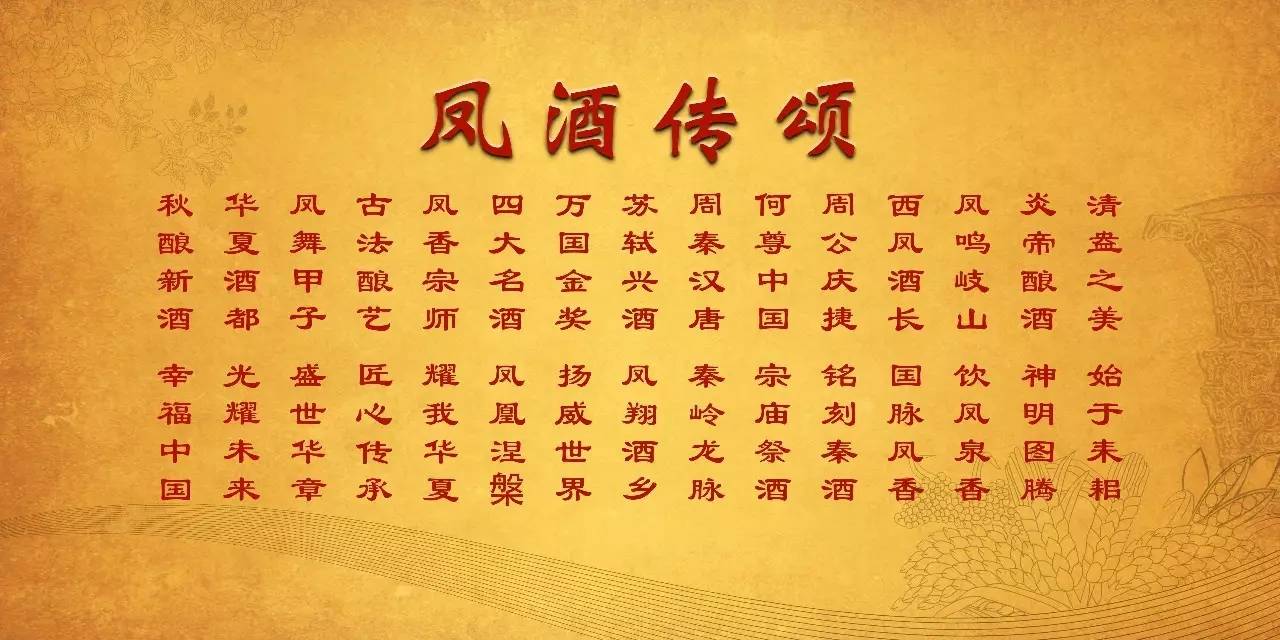 凤酒传颂
清盎之美
始于耒耜
炎帝酿酒
神明图腾
凤鸣岐山
饮凤泉香
西凤酒长
国脉凤香
周公庆捷
铭刻秦酒
何尊中国
宗庙祭酒
周秦汉唐
秦岭龙脉
苏轼兴酒
凤翔酒乡
万国金奖
扬威世界
四大名酒
凤凰涅槃
凤香宗师
耀我华夏
古法酿艺
匠心传承
凤舞甲子
盛世华章
华夏酒都
光耀未来
秋酿新酒
幸福中国